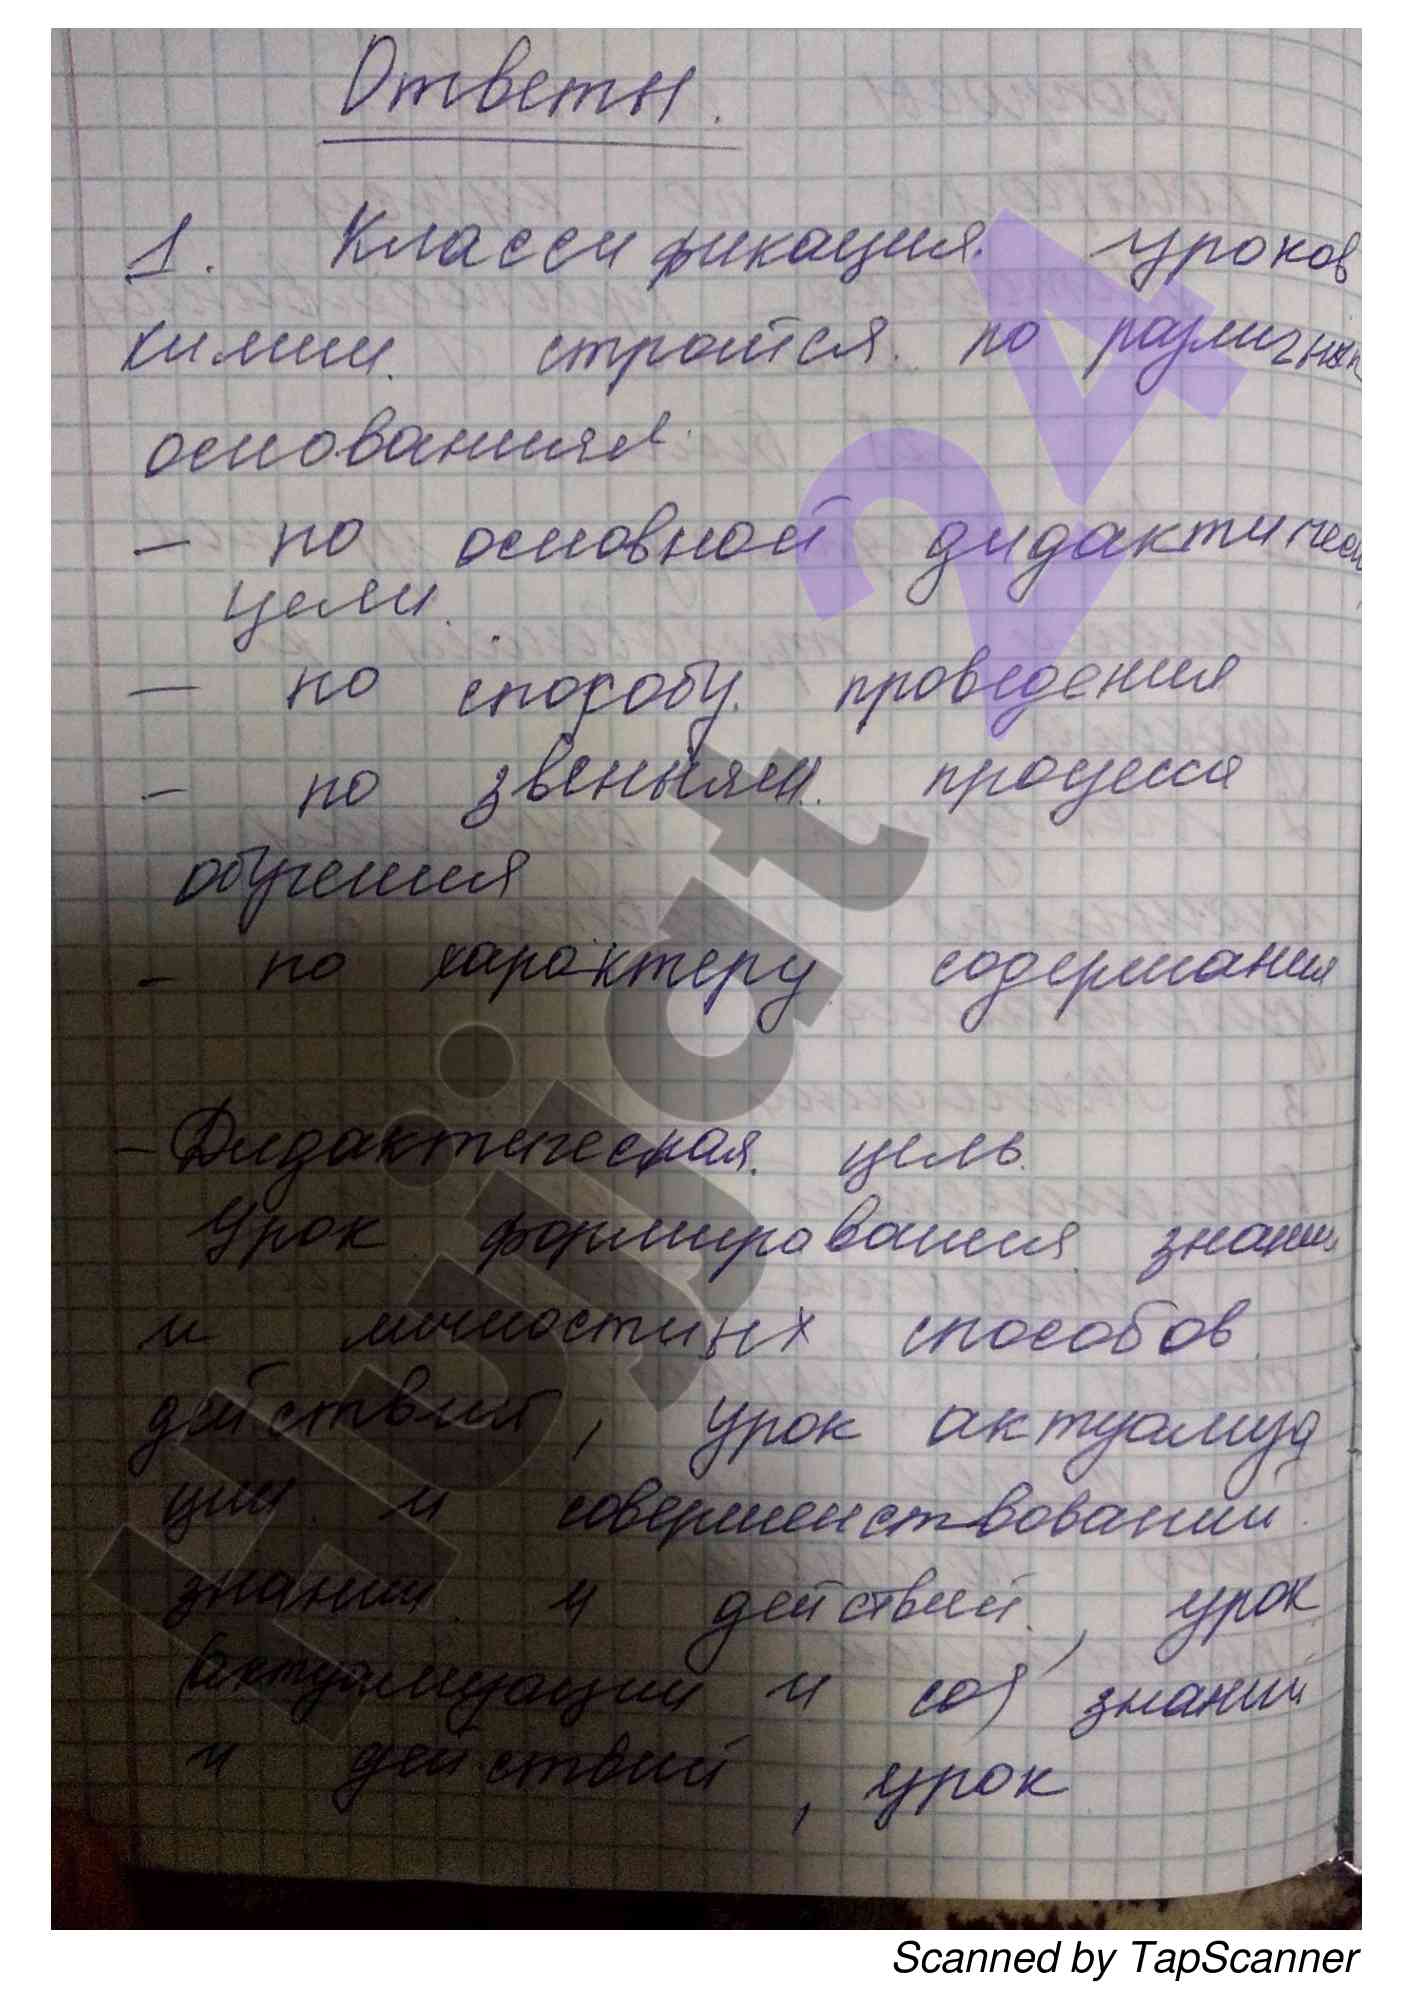 Ответы.
1. Классификация уроков
химии строится по различных
основаниям.
- по основной дидактической
цели.
- по способу проведения
- по звеньям процесса
обучения
- по характеру содержания
- Дидактическая цель.
Урок формирования знания
и личностных способов
действий, урок актуализа
ции и совершенствовании
знании и действий, урок
(актуализации и со) знании
и действий, урок
Hujjat 24
Scanned by TapScanner